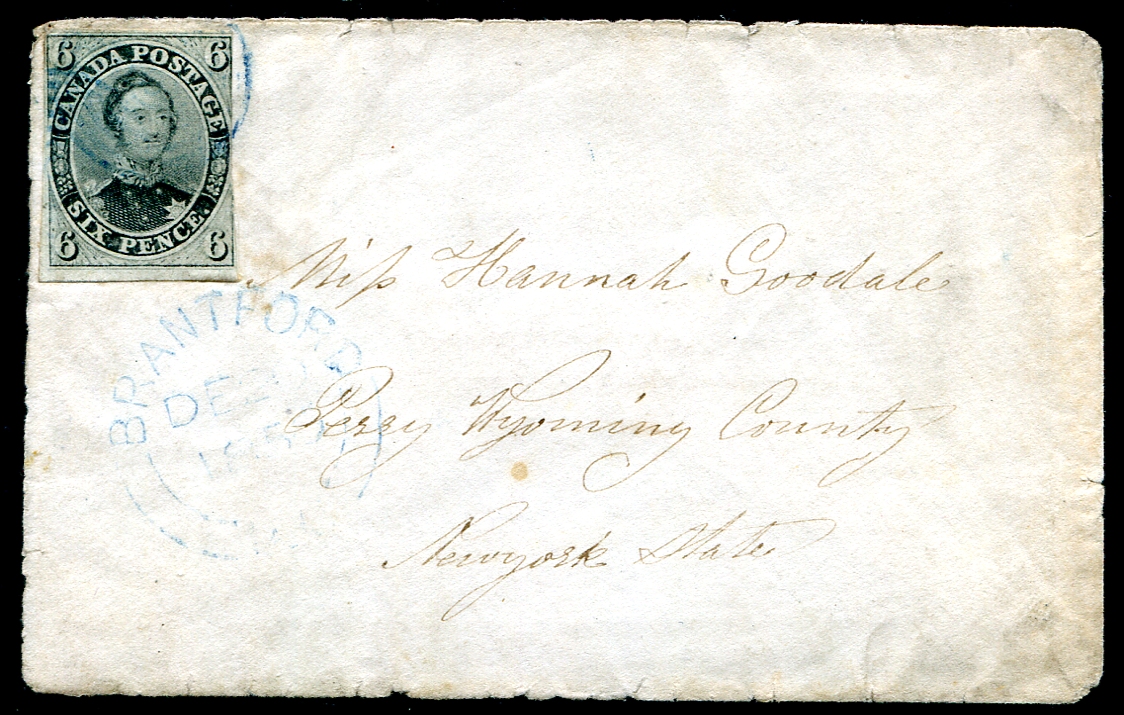 6 6
CANADA POSTAGE
SIX PENCE.
6 6
Miss Hannah Goodale
BRANTFORD
DE
Perry Wyoming County
Newyork State